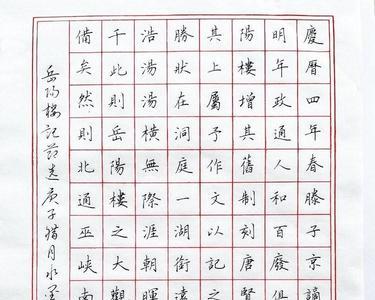 慶曆四年春滕子京謫
明年政通人和百廢俱
陽樓增其舊制刻唐賢
其上屬予作文以記之
勝狀在洞庭一湖銜遠
浩湯湯橫無際涯朝暉
千此則岳陽樓之大觀
備矣然則北通巫峽南
岳阳楼記节选庚子腊月水